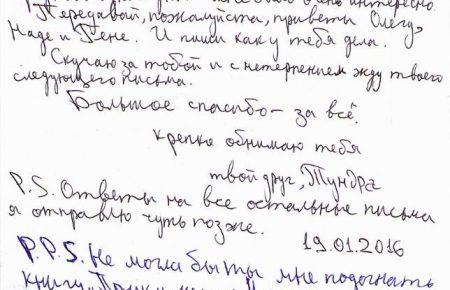 очень интересно.
Передавай, пожалуйста, приветы Олегу,
Наде и Гене. И пиши как у тебя дела.
Скучаю за тобой и с нетерпением жду твоего
следующего письма.
Большое спасибо – за всё.
крепко обнимаю тебя
твой друг, Тундра
P.S. Ответы на все остальные письма
я отправлю чуть позже.
19.01.2016
P.P.S. Не могла бы ты мне подогнать
книгу